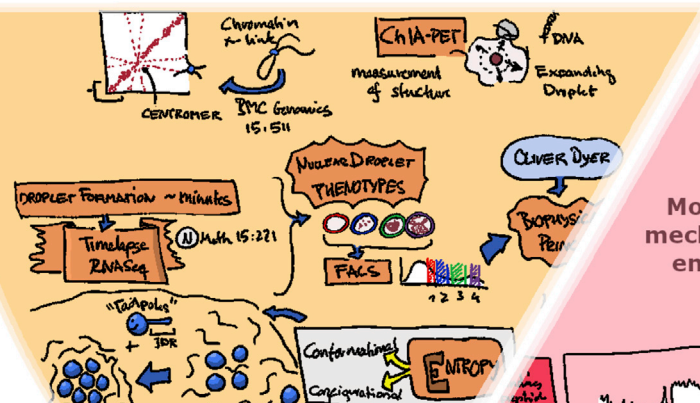 Chromatin
x-link
CENTROMER
BMC Genomics
15:511
ChIA-PET
DNA
measurement
of structure
Expanding
Droplet
DROPLET FORMATION ~ minutes
Timelapse
RNASeq
N Meth 15:221
NUCLEAR DROPLET
PHENOTYPES
FACS
1 2 3 4
OLIVER DYER
BIOPHYSIC
"Tadpoles"
+
IDR
Conformational
Configurational
ENTROPY
Mo
mech
en